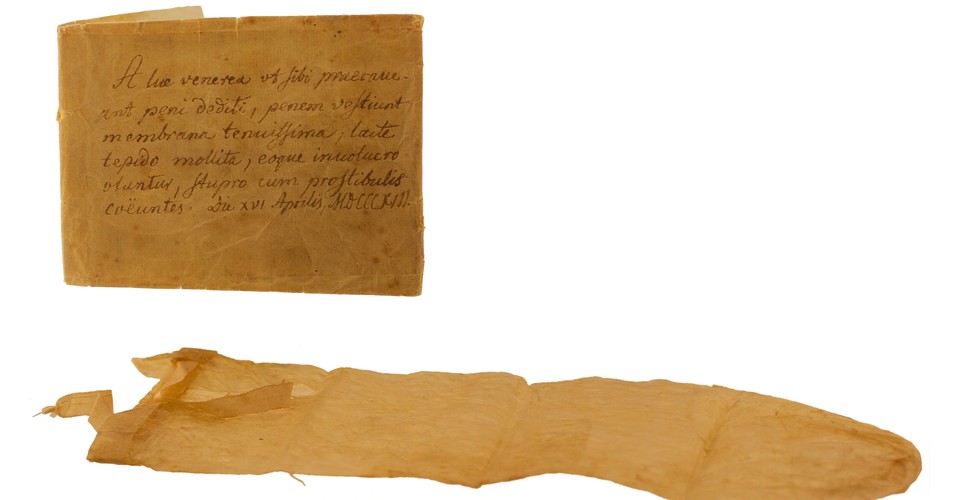 A lue venerea vt sibi praecaue-
ant peni dediti, penem vestiunt
membrana tenuissima, lacte
tepido mollita, eoque inuolucro
vtuntur, stupro cum prostibulis
coëuntes. Die XVI Aprilis, MDCCCXIII.